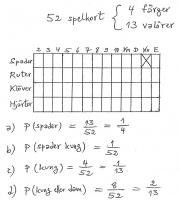 52 spelkort { 4 färger
13 valörer
2 3 4 5 6 7 8 9 10 Kn D Ku E
Spader
Ruter
Klöver
Hjärter
a) P(spader) = 13/52 = 1/4
b) P(spader kung) = 1/52
c) P(kung) = 4/52 = 1/13
d) P(kung eller dam) = 8/52 = 2/13